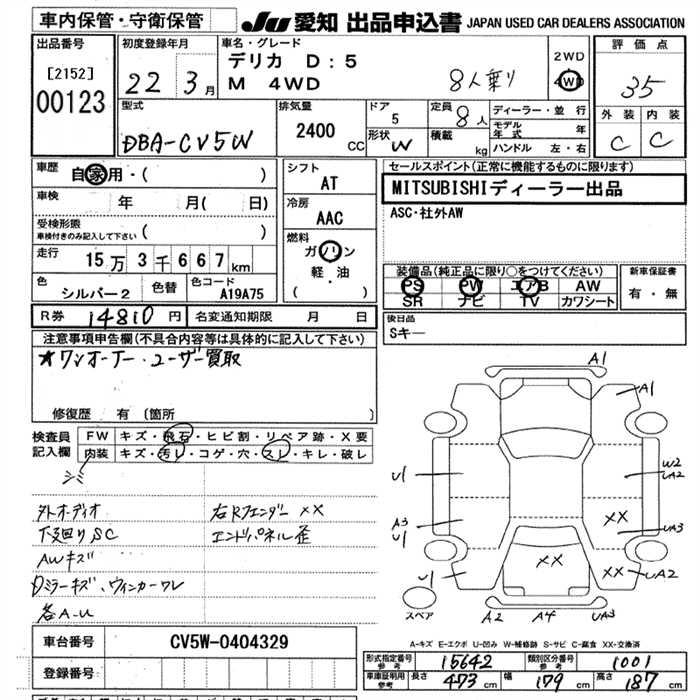 車内保管・守衛保管
JU 愛知 出品申込書 JAPAN USED CAR DEALERS ASSOCIATION
出品番号
[2152]
00123
初度登録年月
22年3月
車名・グレード
デリカ D:5
M 4WD
8人乗り
2WD
4WD
評価点
3.5
外装 内装
C C
型式
DBA-CV5W
排気量
2400 CC
ドア
5
形状
W
定員
8人
積載
kg
ディーラー・並行
モデル年式 年
ハンドル 左・右
車歴
自家用・( )
車検
年 月( 日)
受検形態
車検付きのみ記入して下さい ( )
走行
15万3千667km
色
シルバー2
色替
色コード
A19A75
シフト
AT
冷房
AAC
燃料
ガソリン
軽・油
( )
セールスポイント(正常に機能するものに限ります)
MITSUBISHIディーラー出品
ASC・社外AW
装備品(純正品に限り○をつけてください)
PS PW エアB AW
SR ナビ TV カワシート
新車保証書
有・無
後日品
Sキー
R券 14810円 名変通知期限 月 日
注意事項申告欄(不具合内容等は具体的に記入して下さい)
★ワンオーナー・ユーザー買取
修復歴 有(箇所 )
検査員
記入欄
FW キズ・飛石・ヒビ割・リペア跡・X要
内装 キズ・汚レ・コゲ・穴・スレ・キレ・破レ
シミ
外オーディオ
下廻りSC
AWキズ
Dミラーキズ、ウィンカーワレ
各A-U
右Rフェンダー XX
エンドパネル歪
A1
A1
U1
W2
UA2
A3
U1
XX
UA3
XX
U1
XX
UA2
スペア
A2
A4
UA3
A-キズ E-エクボ U-凹み W-補修跡 S-サビ C-腐食 XX-交換済
車台番号 CV5W-0404329
登録番号
形式指定番号
参考
15642
類別区分番号
参考
1001
車庫証明用
参考
長さ 473cm 幅 179cm 高さ 187cm